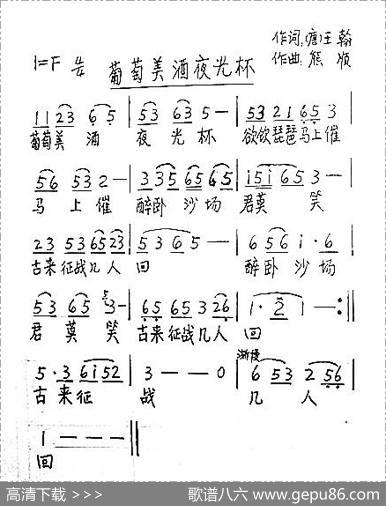 葡萄美酒夜光杯
作词:唐王翰
1=F 4/4 作曲:熊顺
1 1 2 3 6 5 | 5 3 6 3 5 — | 5 3 2 1 6 5 3
葡萄美 酒 夜 光 杯 欲饮琵琶马上催
5 6 5 3 2 — | 3 3 5 6 5 6 5 | i 5 i 6 5 3 —
马 上 催 醉卧 沙 场 君莫 笑
2 3 5 3 6 5 2 3 | 5 3 6 5 — | 6 5 6 i · 6
古来征战几人 回 醉卧 沙场
5 3 6 5 3 — | 6 5 6 5 3 2 6 | 1 · 2 1 — :||
君 莫 笑 古来征战几人 回
5 · 3 6 i 5 2 | 3 — — 0 | 6 5 3 2 5 6
渐慢
古 来 征 战 几 人
1 — — — ||
回
高清下载 >>> 歌谱八六 www.gepu86.com